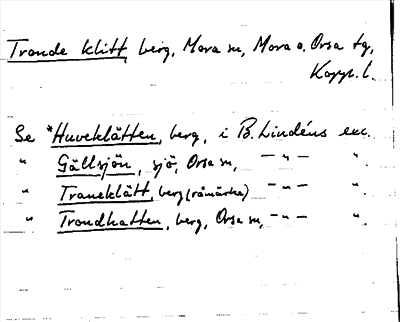 Tronde klitt, berg, Mora sn, Mora o. Orsa tg,
Kopp. l.
Se *Huveklätten, berg, i B. Lindéns exc.
" Gällsjön, sjö, Orsa sn, — " — ".
" Traneklätt, berg (råmärke) — " — ".
" Trondhatten, berg, Orsa sn, — " — ".